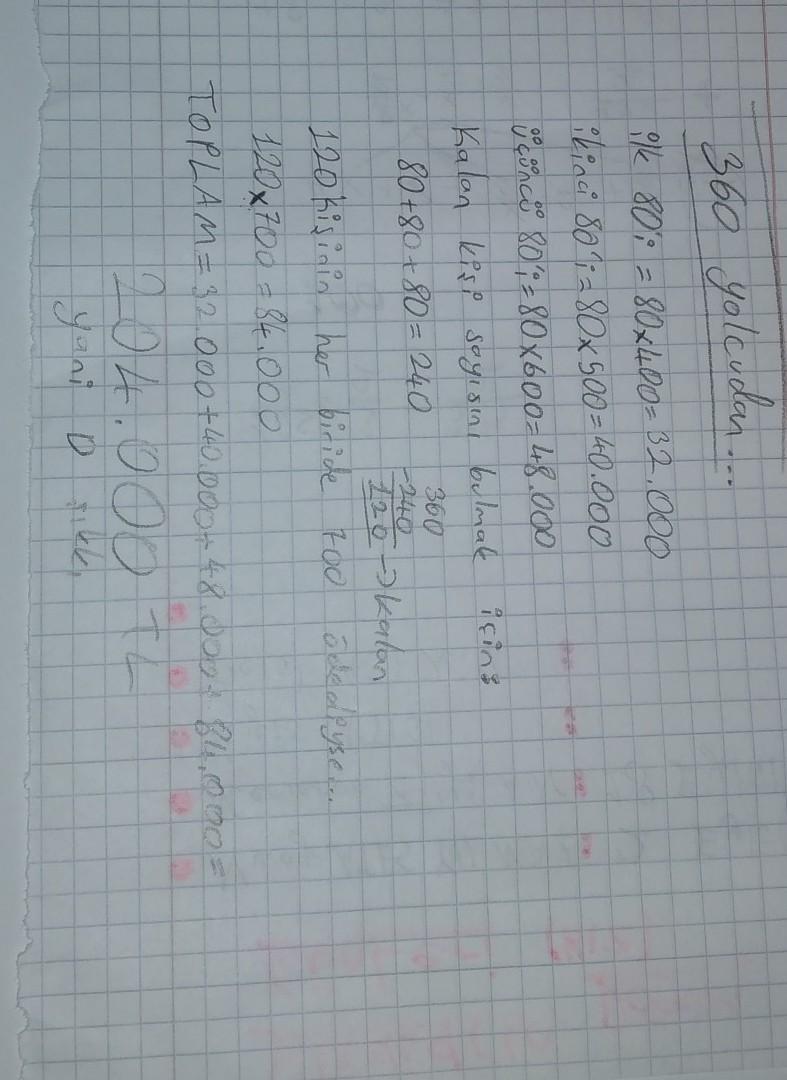 360 yolcudan...
ilk 80'i = 80x400=32.000
ikinci 80'i=80x500=40.000
üçüncü 80'i=80x600=48.000
Kalan kişi sayısını bulmak için:
80+80+80=240
360
-240
120 → kalan
120 kişinin her biride 700 ödediyse...
120x700=84.000
TOPLAM=32.000+40.000+48.000+84.000=
204.000 TL
yani D şıkkı